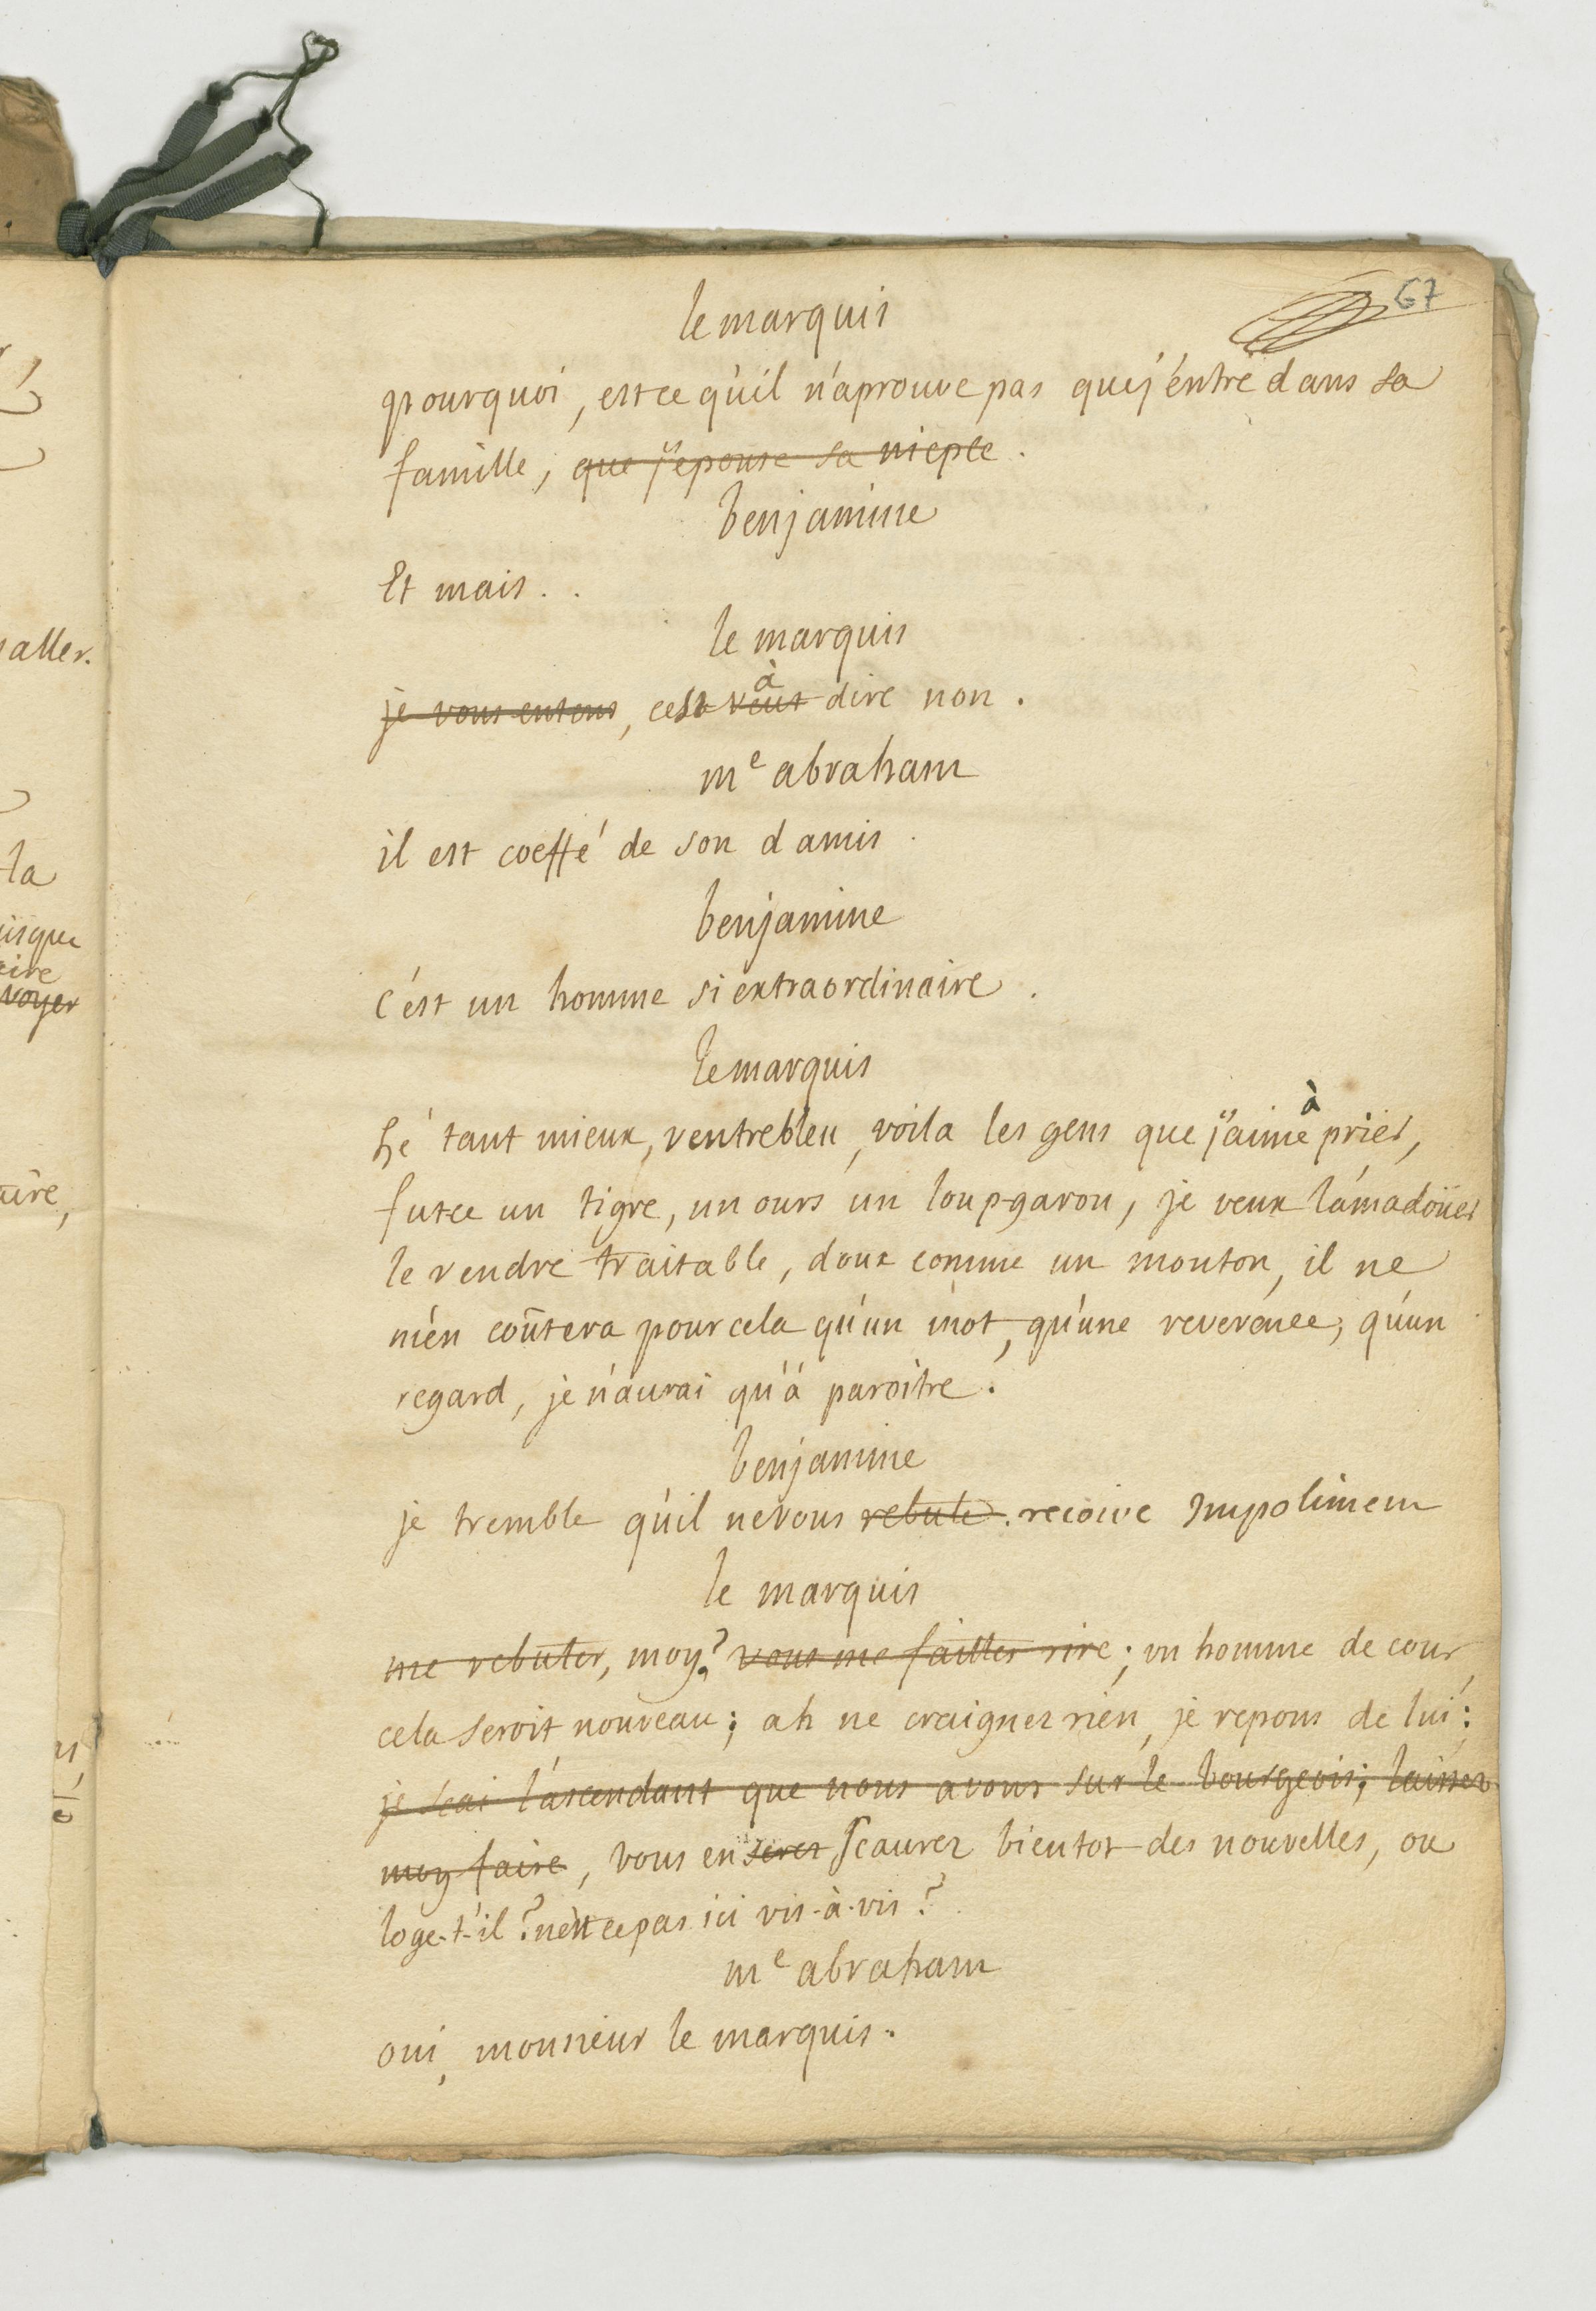 67
le marquis
pourquoi, est ce qu'il n'aprouve pas que j'entre dans sa
famille, que j'epouse sa niepce.
benjamine
Et mais . .
le marquis
à
je vous entens, cest veut dire non.
me abraham
il est coeffé de son damis.
benjamine
c'est un homme si extraordinaire.
le marquis
à
hé tant mieux, ventrebleu, voila les gens que j'aime prier,
futce un tigre, un ours un loup-garou, je veux l'amadoüer
le rendre traitable, doux comme un mouton, il ne
m'en coûtera pour cela qu'un mot, qu'une reverence, qu'un
regard, je n'aurai qu'à paroitre.
benjamine
je tremble qu'il ne vous rebute. recoive Impoliment
le marquis
me rebuter, moy? vous me failles rire; un homme de cour
cela seroit nouveau; ah ne craignez rien, je repons de lui:
je scai l'ascendant que nous avons sur le bourgeois; laisser
moy faire, vous en serez scaurez bientot des nouvelles, ou
loge-t-il? n'est ce pas ici vis-à-vis?
me abraham
oui, monsieur le marquis.
aller.
la
isque
voyer